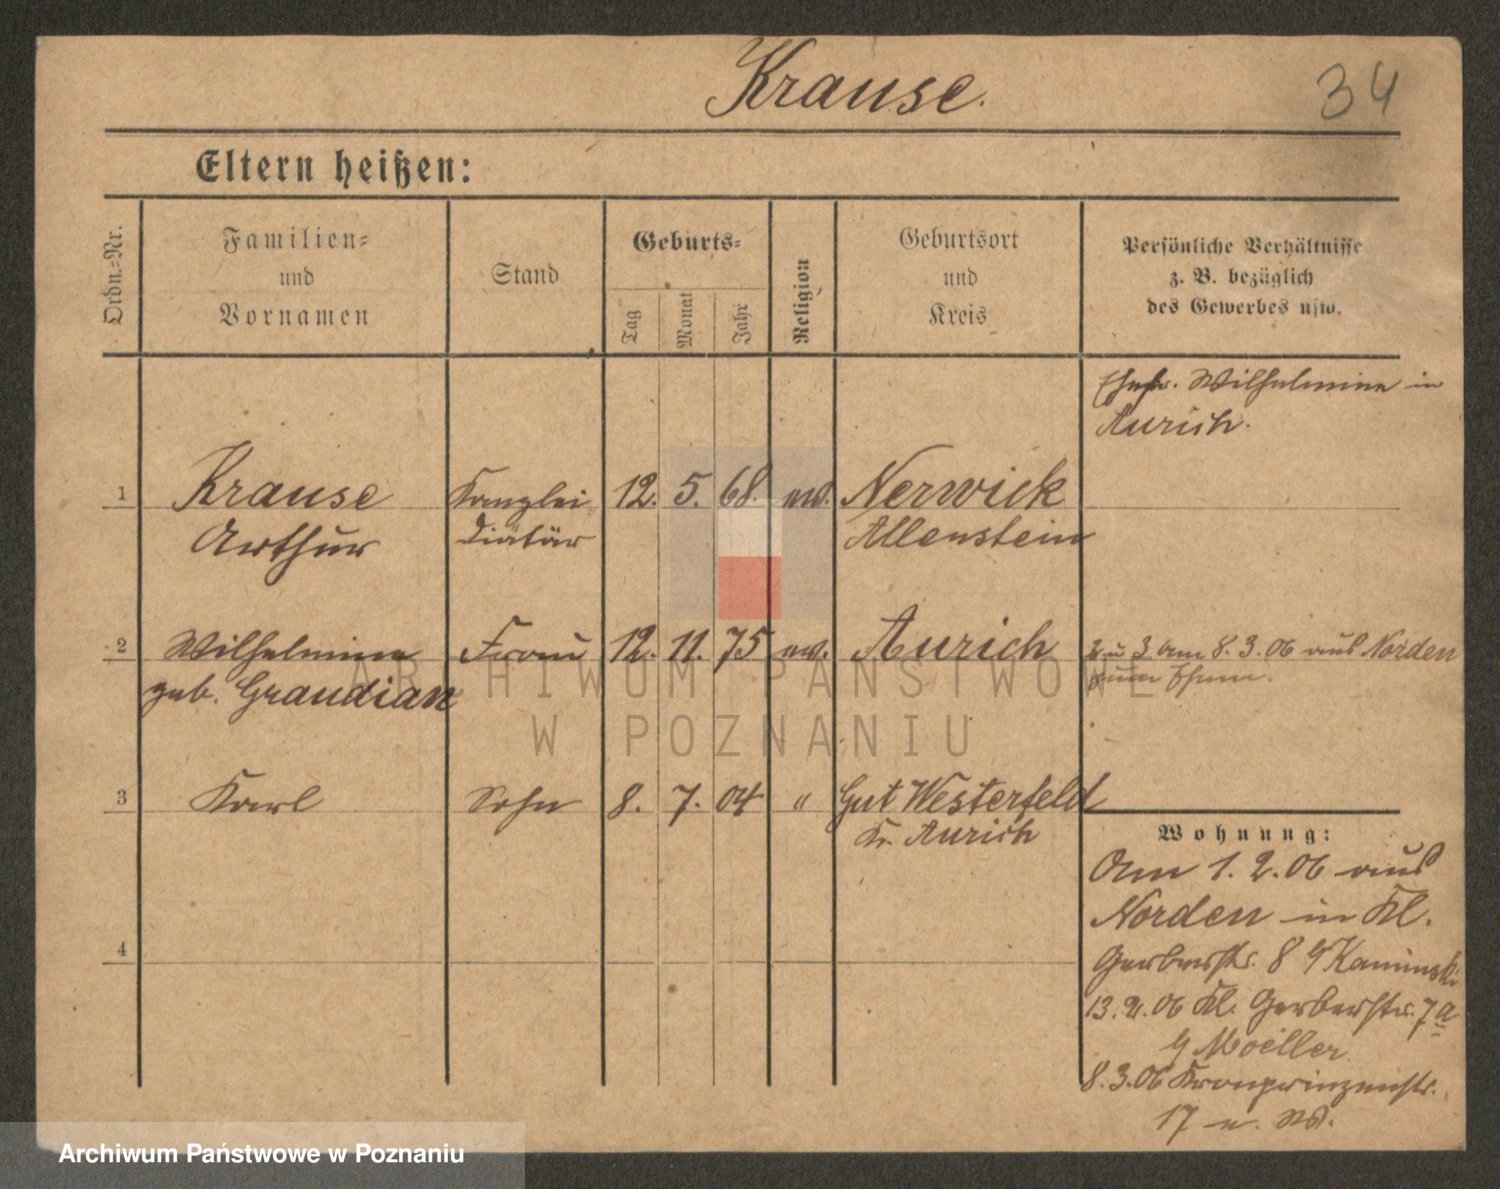 Krause.
34
Eltern heißen:
Ordn.-Nr.
Familien-
und
Vornamen
Stand
Geburts-
Tag
Monat
Jahr
Religion
Geburtsort
und
Kreis
Persönliche Verhältnisse
z. B. bezüglich
des Gewerbes usw.
Ehefr. Wilhelmine in
Aurich.
1 Krause Kanzlei 12. 5. 68. ev. Nerwick
Arthur Diätär Allenstein
2 Wilhelmine Frau 12. 11. 75 ev. Aurich 2 u. 3 am 8. 3. 06 aus Norden
geb. Graudian zum Ehem.
3 Karl Sohn 8. 7. 04 " Gut Westerfeld
Kr. Aurich
Wohnung:
Am 1. 2. 06 aus
Norden in Kl.
Gerberstr. 8 b/ Kaminski
13. 2. 06 Kl. Gerberstr. 7a
b/ Moeller
8. 3. 06 Kronprinzenstr.
17 u. W.
4
ARCHIWUM PAŃSTWOWE
W POZNANIU
Archiwum Państwowe w Poznaniu